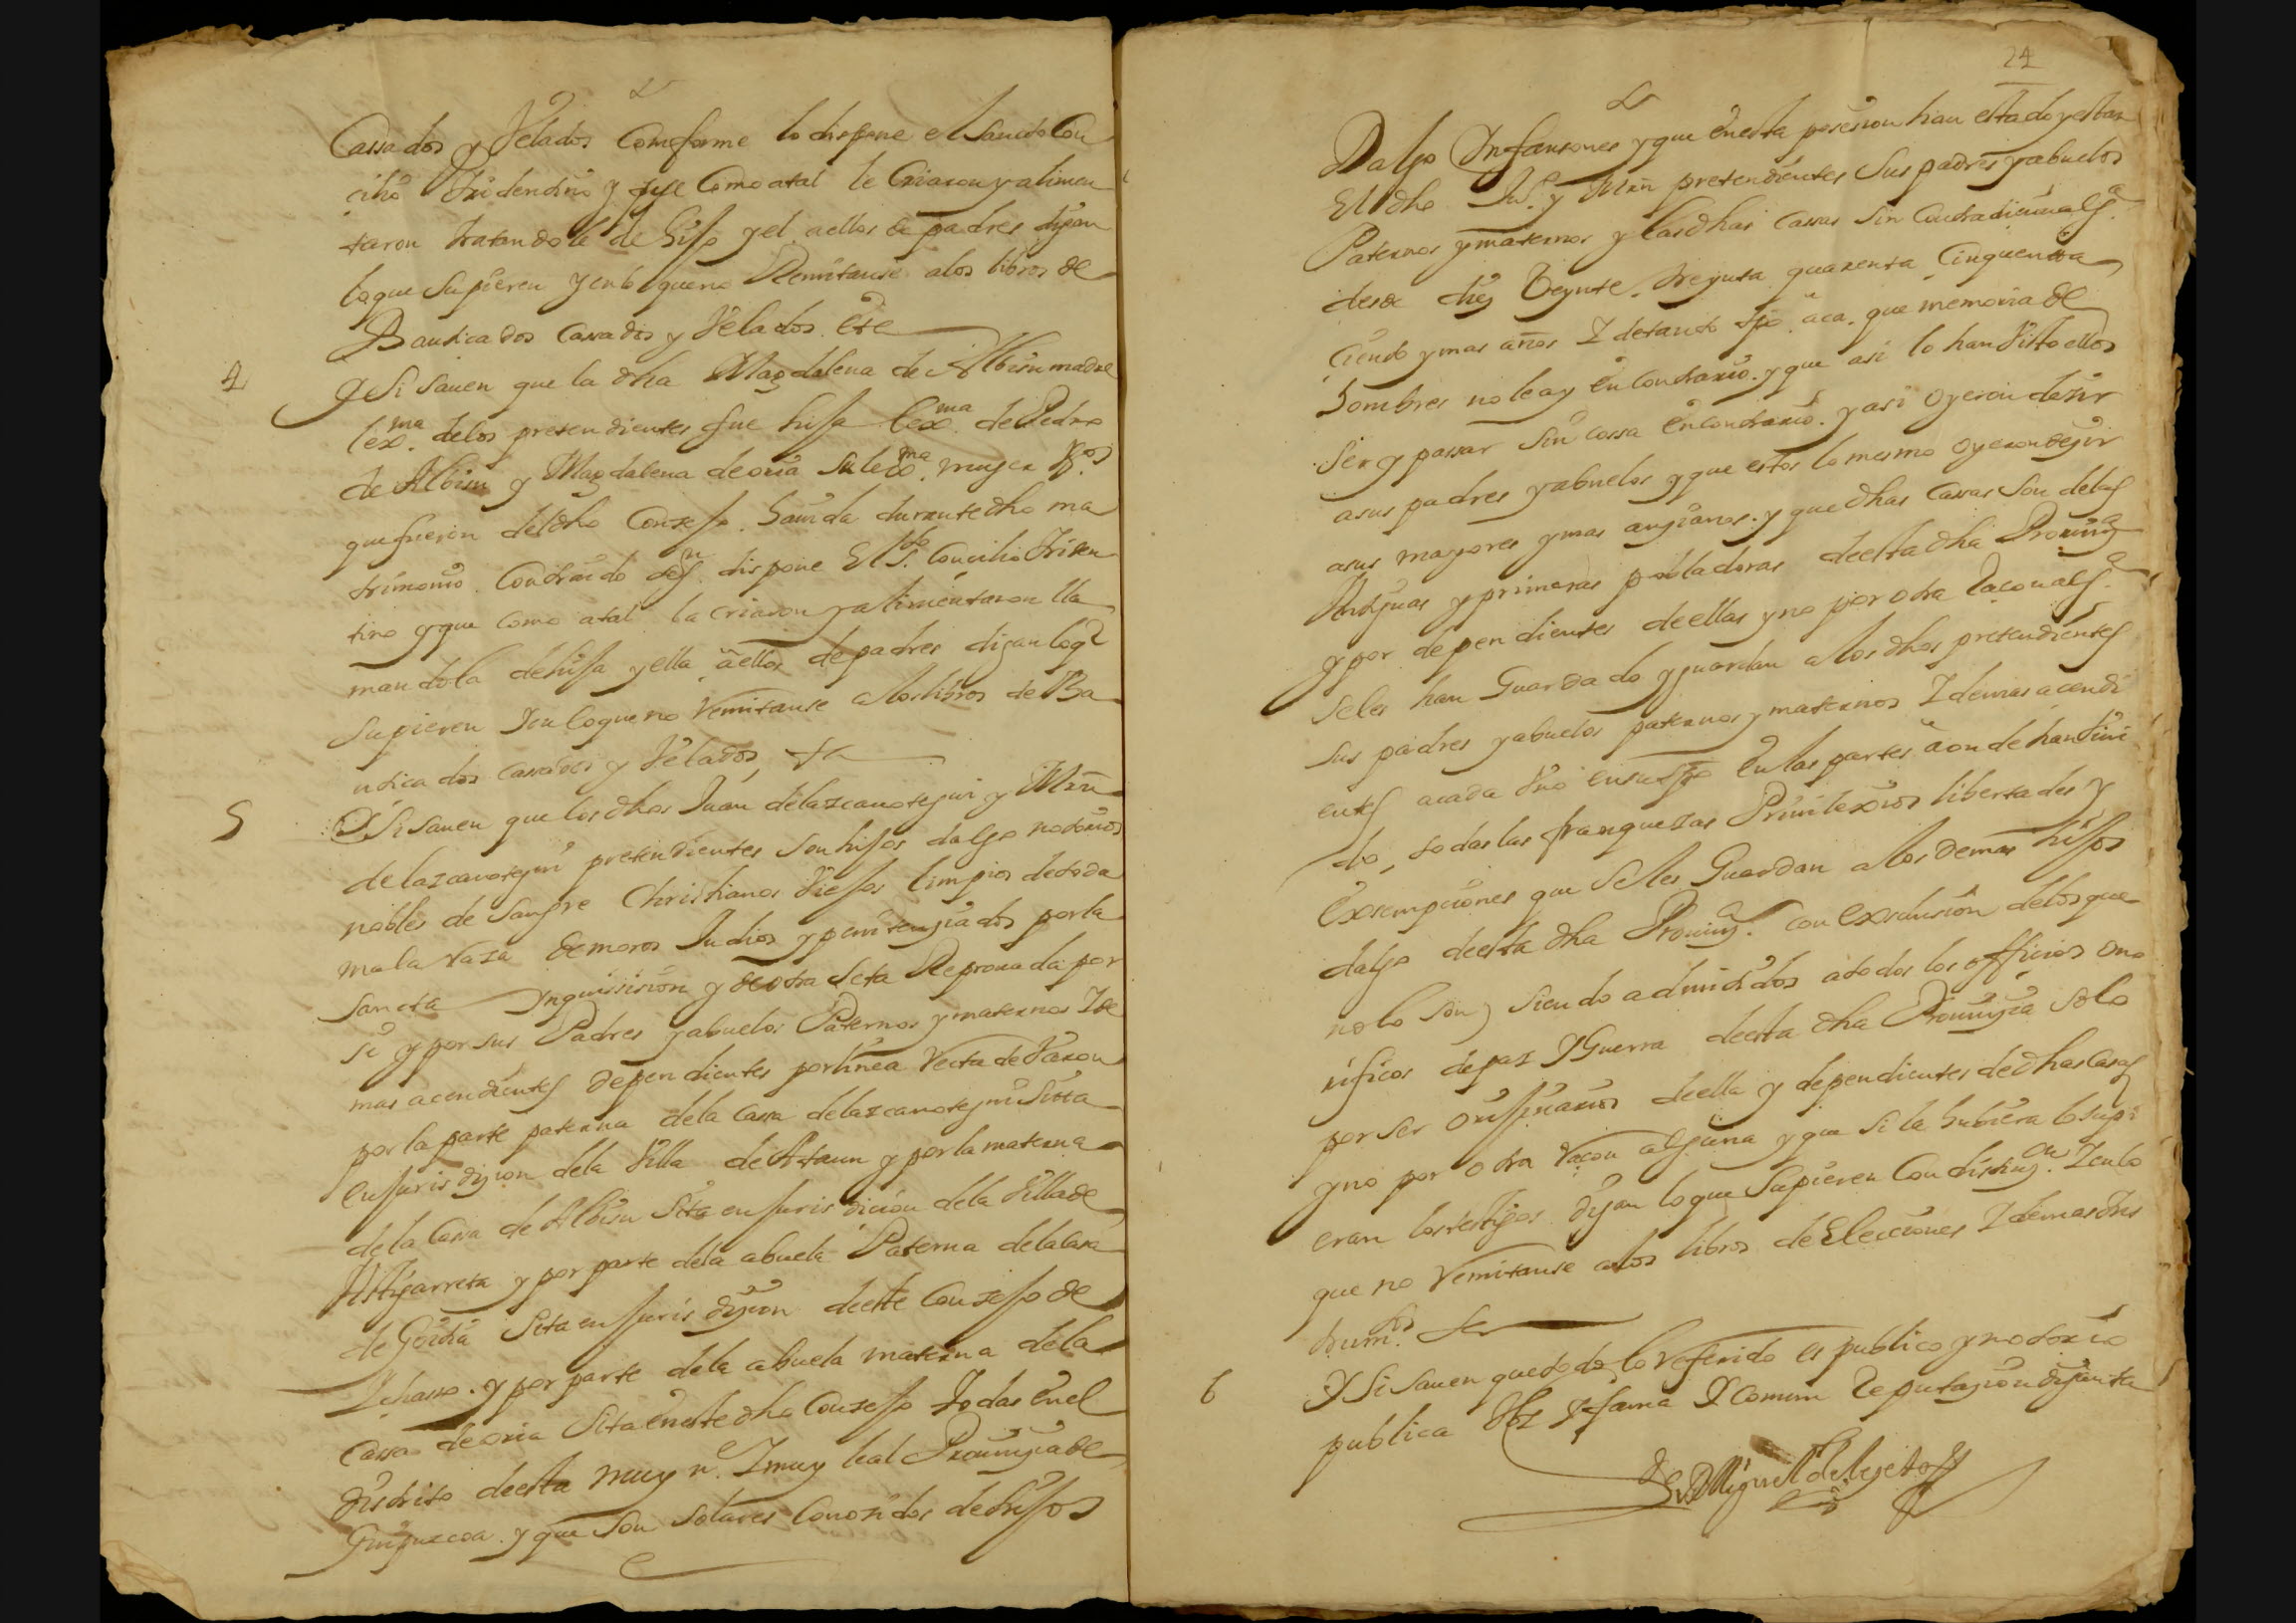 Cassados y Velados Comforme lo dispone el Sancto Con
cilio Tridendino y que Como atal le Criaron y alimen
taron tratandole de hijo y el aellos de padres digan
loque Supieren y enloqueno Remitanse alos libros de
Bauticados Cassados y Velados ete
4 Y Si Sauen que la dha Magdalena de Albisu madre
lex.ma delos pretendientes fue hija lex.ma de Pedro
de Albisu y Magdalena deoria Su lex.ma muger Vº.s
que fueron deldho Consejo. hauida durante dho ma
trimonio Contraido segn. dispone El Sto. Concilio Triden
tino yque como atal la criaron yalimentaron lla
mandola dehija yella aellos depadres digan loq
Supieren Yen loqueno Remitanse alos libros de Ba
uticados cassados y Velados,
5 Y Si Sauen que los dhos Juan delazcanotegui y Mrn
delazcanotegui pretendientes Son hijos dalgo notorios
nobles de Sangre Christianos Viejos limpios detoda
mala Raza demoros Judios y penitengiados porla
Sancta Ynquissision y deotra Seta Reprouada por
Si y por sus Padres yabuelos Paternos ymaternos Yde
mas acendientes dependientes porlinea Recta deVaron
porla parte paterna dela Cassa delazcanotegui Sitta
enJurisdizion dela Villa deAtaun y porla materna
dela Cassa de Albisu Sita enJurisdicion dela Villade
Astigarreta y por parte dela abuela Paterna delacasa
de Goitia Sita enJurisdizion deeste Consejo de
Ychasso. y por parte dela abuela materna dela
Cassa deoria Sita eneste dho Consejo todas enel
distrito deesta muy n. Ymuy leal Prouingiade
Guipuzcoa. y que Son Solares Conozidos dehijos
24
Dalgo Infansones yque enesta posesion han estado yestan
El dho Ju. y Mrn pretendientes Sus padres yabuelos
Paternos ymaternos y lasdhas Cassas Sin Contradicionalg.a
desde diez Veynte, treynta quarenta Cinquenta
Ciento ymas años Y detanto tpo aca. que memoria de
hombres noleay en Contrario. y que asi lo han Visto ellos
Ser y passar Sin cossa en Contrario. y asi oyeron dezir
asus padres yabuelos yque estos lo mesmo oyeron dezir
asus mayores ymas angianos. y quedhas Cassas Son delas
Antiguas yprimeras pobladoras deesta dha Prouing.a
ypor dependientes deellas yno por otra Raçon alg.a
Seles han Guardado yguardan alos dhos pretendientes
Sus padres yabuelos paternos y maternos Y demas acendi
entes acada Vno ensu tpo en las partes aonde han Viui
do, todas las franquezas Priuilexios libertades y
Exsempciones que Seles Guardan alos demas hijos
dalgo deesta dha Prouing.a con exsclusion delosque
nolo Son) Siendo admitidos atodos los officios ono
rificos depaz YGuerra deesta dha Prouingia Solo
por Ser originarios deella y dependientes dedhasCasas
yno por otra Raçon alguna y que Si la hubiera losupi
eran lostestigos. digan loque Supieren Con distinçon. Yenlo
que no Remitanse alos libros deElecciones Ydemas Ins
trum.tos
6 Y Si Sauen quetodo lo Referido es publico ynotorio
publica Voz Yfama Y Comun Reputagion digan ta